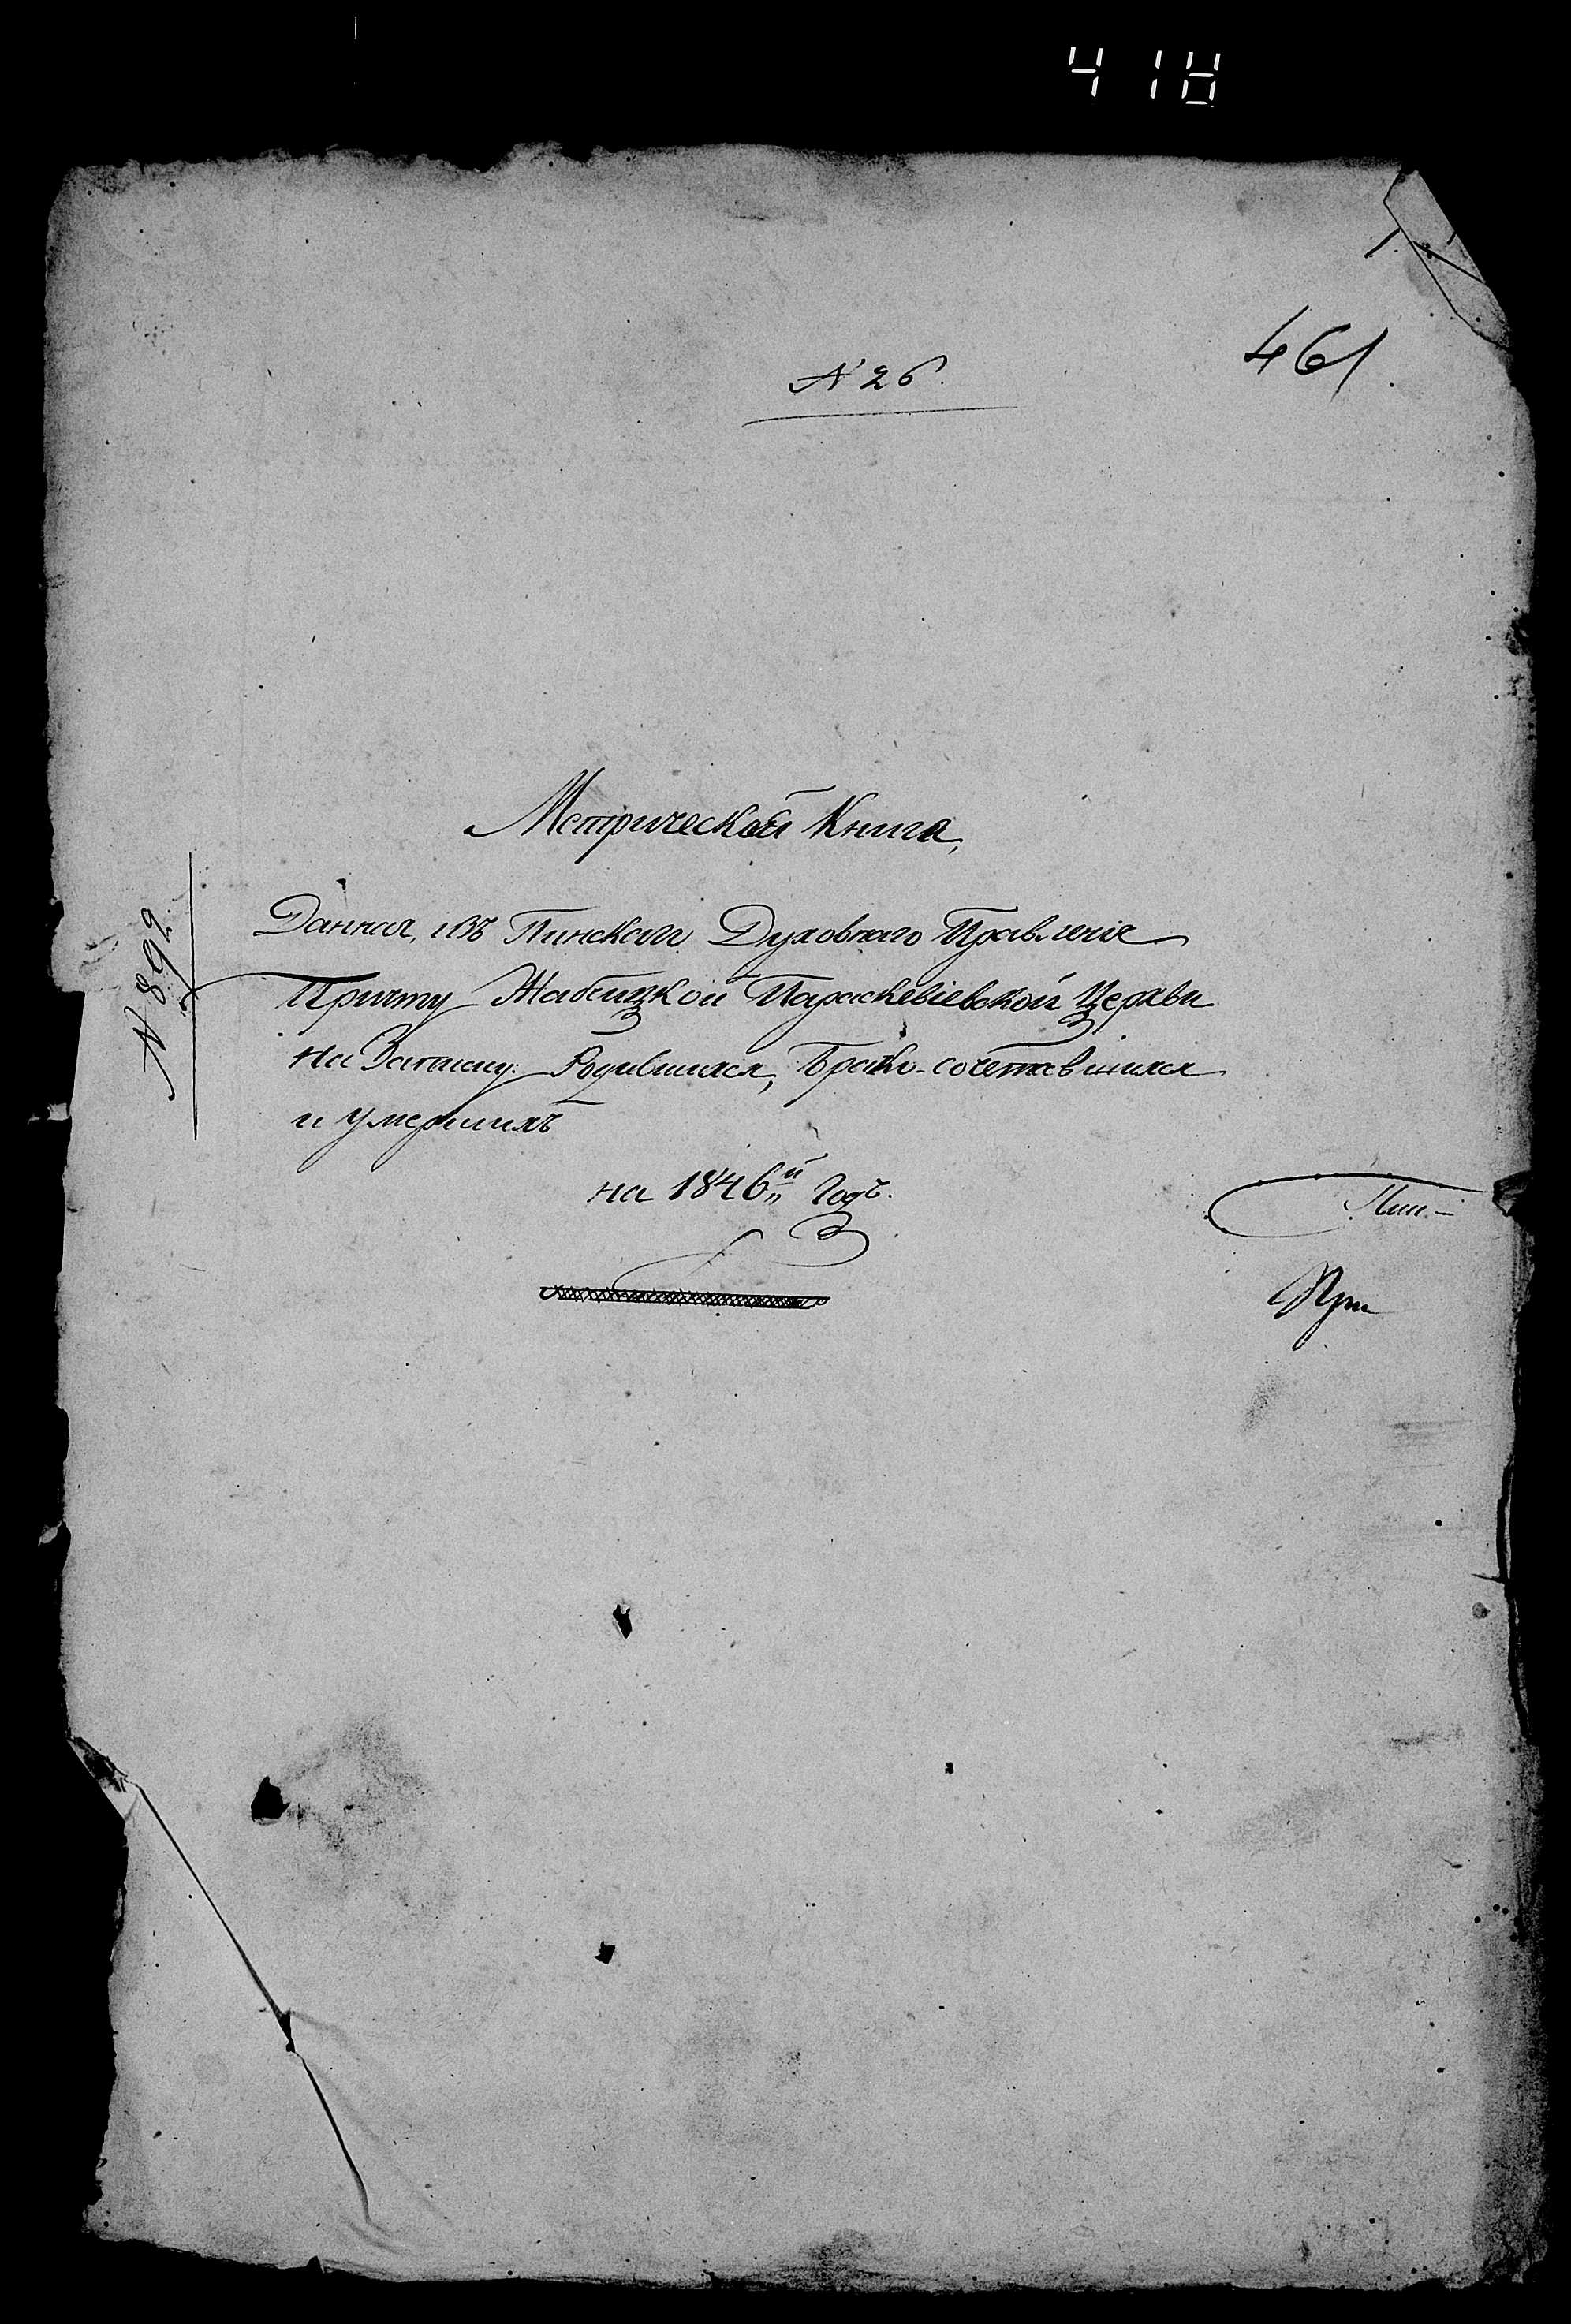 418
461.
N 26.
Метрической Книга,
N 892
Данная, изъ Пинскаго Духовнаго Правленія
Причту Жабчицкой Параскевіевской Церкви
на Записку Родившихся, Брако-сочетавшихся
и умершихъ
на 1846й Годъ.
Пин-
При